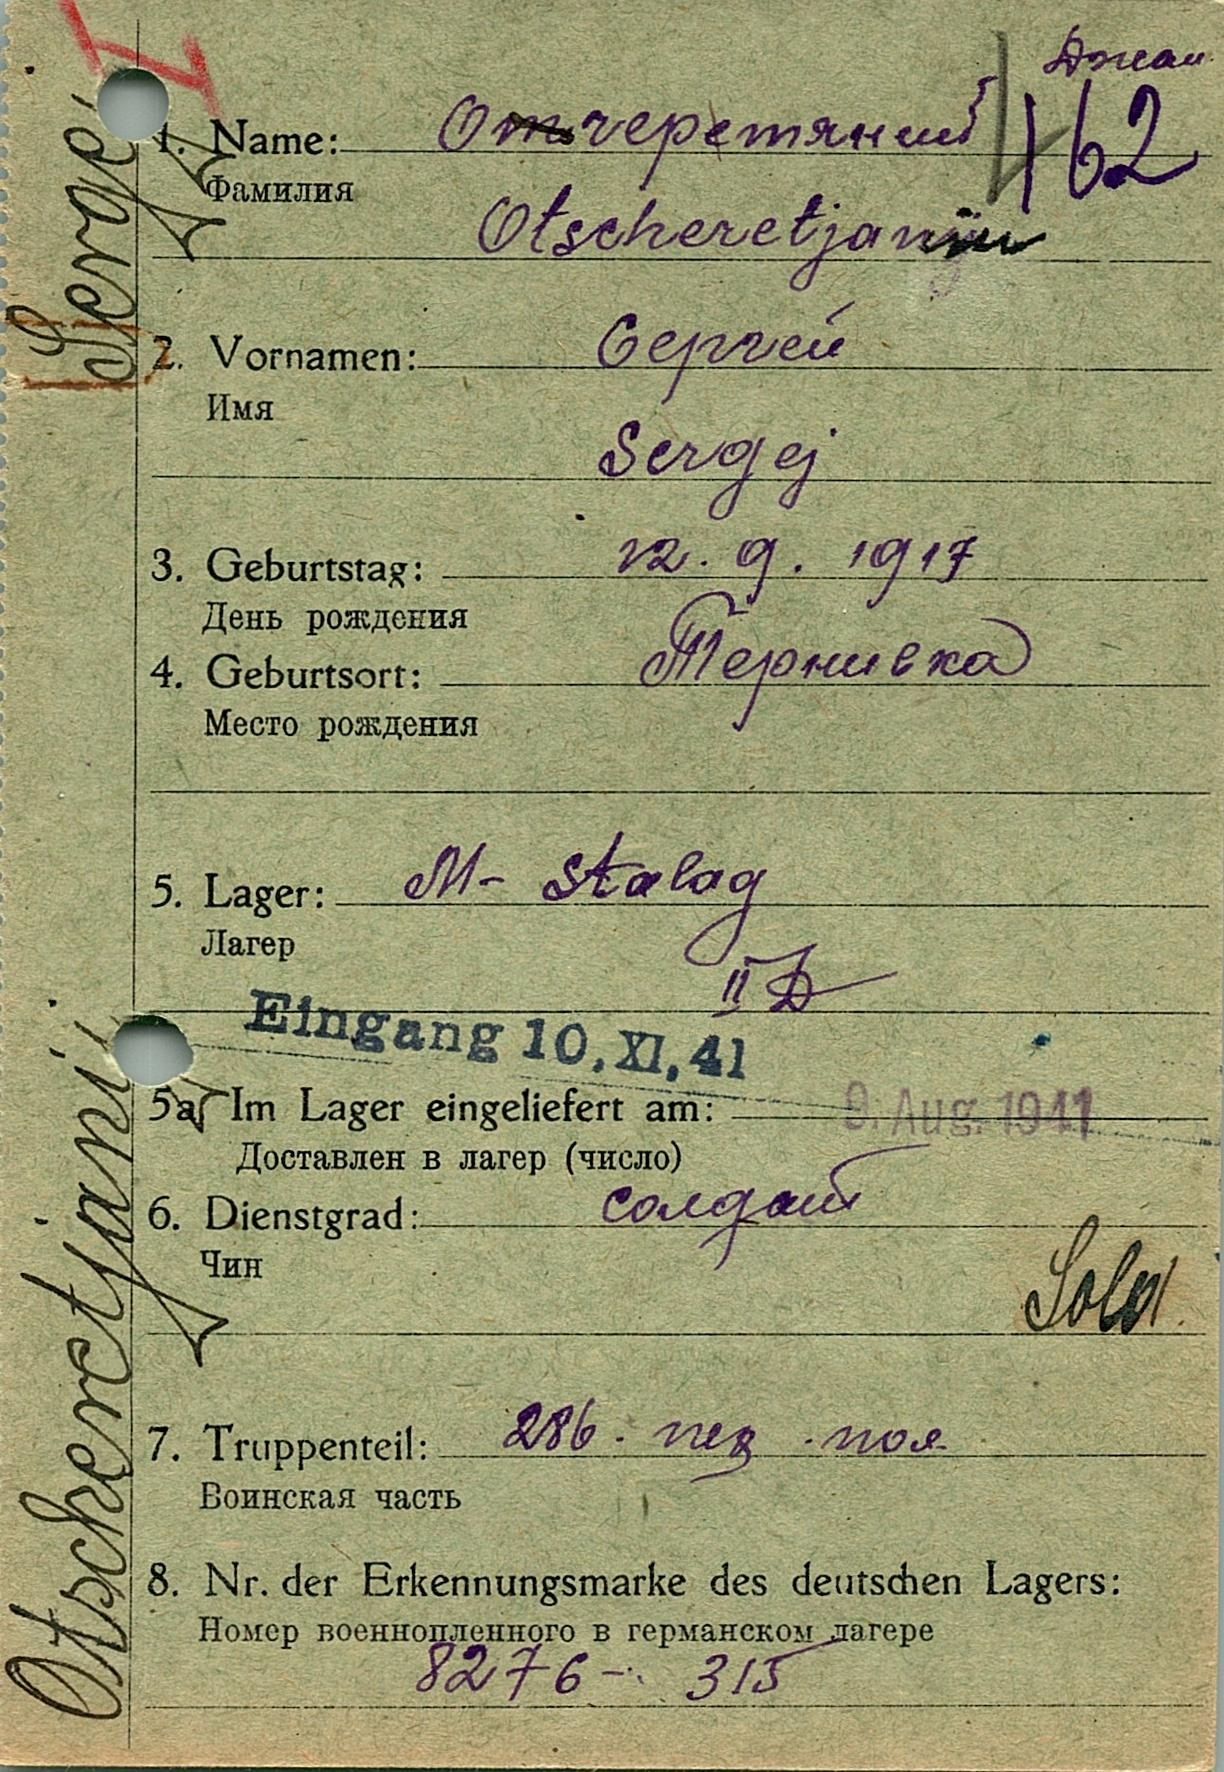 462
1. Name: Отчеретяний
Фамилия
Otscheretjanij
2. Vornamen: Сергей
Имя
Sergej
3. Geburtstag: 12. 9. 1917
День рождения
4. Geburtsort: Тернивка
Место рождения
5. Lager: M- Stalag
Лагер
II D
Eingang 10. XI. 41
5a Im Lager eingeliefert am: 9. Aug. 1941
Доставлен в лагер (число)
6. Dienstgrad: солдат
Чин
Sold.
7. Truppenteil: 286. пех. пол
Воинская часть
8. Nr. der Erkennungsmarke des deutschen Lagers:
Номер военнопленного в германском лагере
8276 - 315
Otscherctjanij Sergej